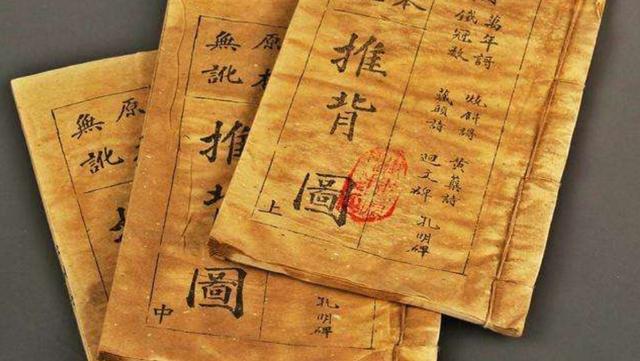 萬年謌
鐵冠數
燒餅謌
藏頭詩
黃蘗詩
迴文碑
孔明碑
本
推背圖
上
原本
無訛
推背圖
中
孔明碑
原
無訛